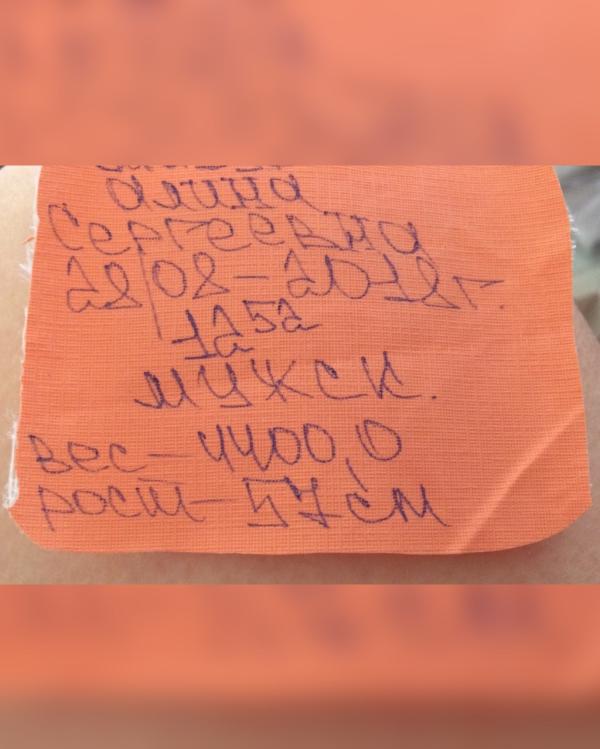 Алина
Сергеевна
28/08-2018г.
12 52
мужск.
вес-4400,0
рост-57см